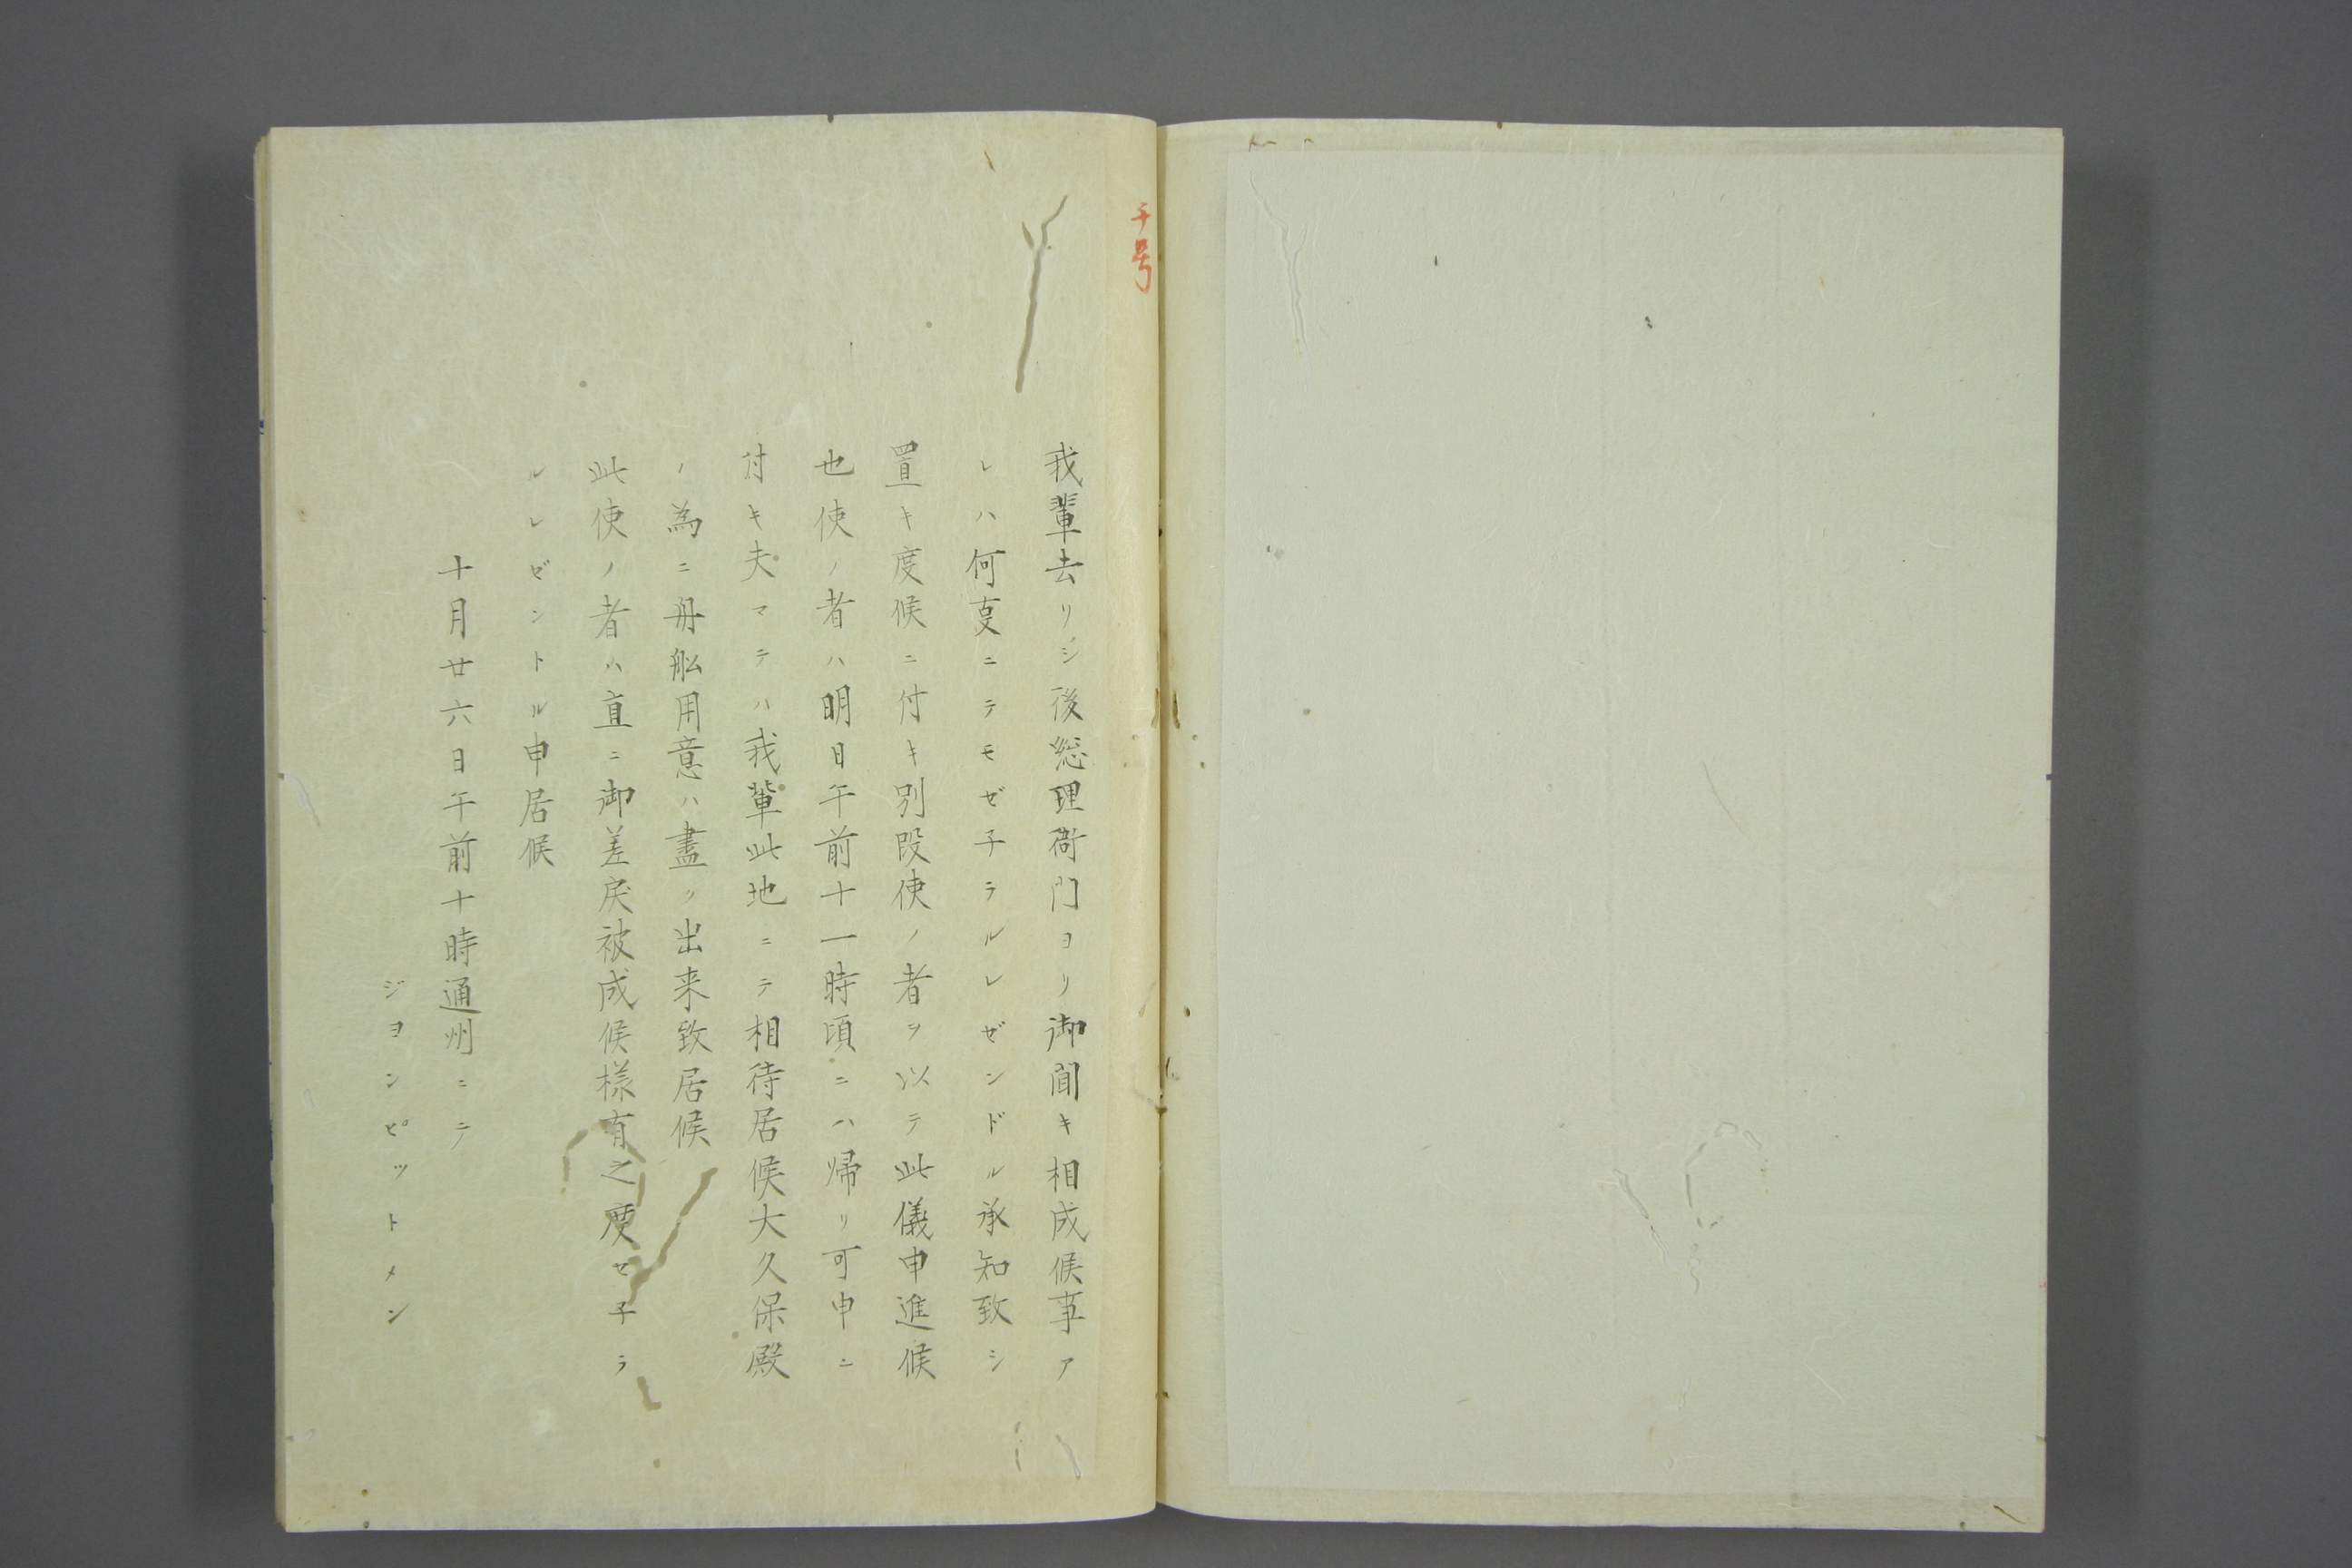 チ号
我輩去リシ後総理衙門ヨリ御聞キ相成候事ア
レハ何叓ニテモゼ子ラルレゼンドル承知致シ
置キ度候ニ付キ別段使ノ者ヲ以テ此儀申進候
也使ノ者ハ明日午前十一時頃ニハ帰リ可申ニ
付キ夫マテハ我輩此地ニテ相待居候大久保殿
ノ為ニ舟舩用意ハ盡ク出来致居候
此使ノ者ハ直ニ御差戻被成候様有之度ゼ子ラ
ルレゼントル申居候
十月廿六日午前十時通州ニテ
ジヨンピットメン